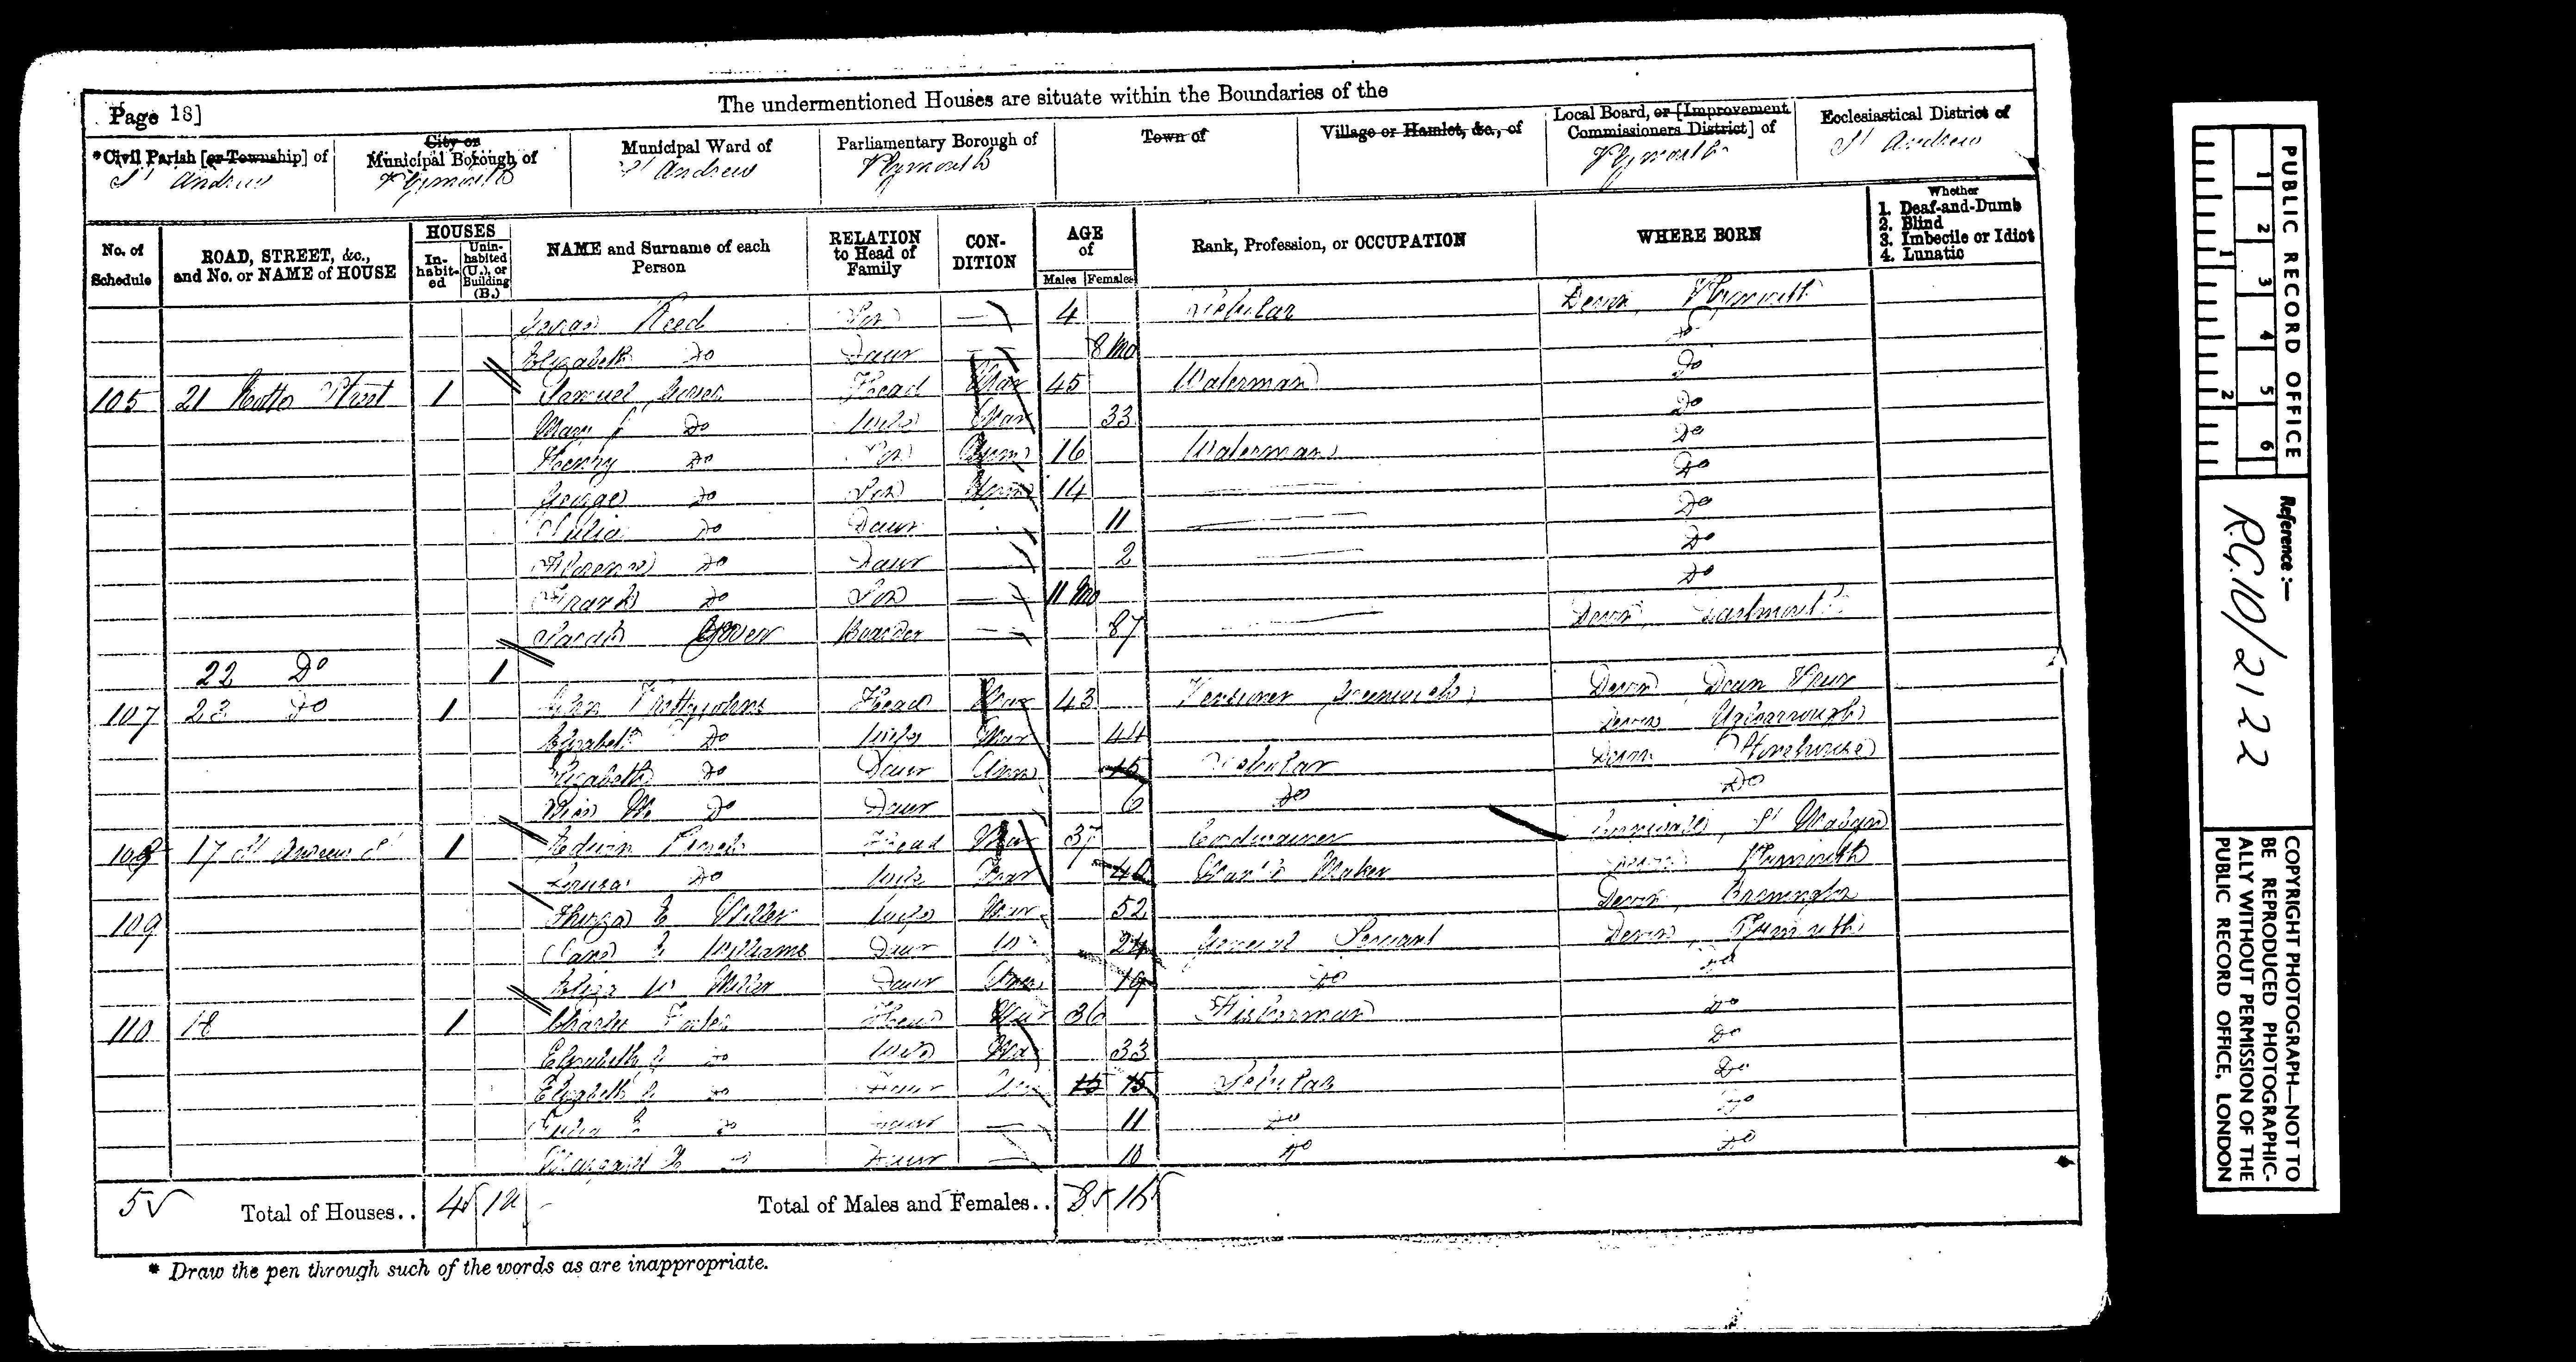 Page 18]
The undermentioned Houses are situate within the Boundaries of the
*Civil Parish [or Township] of
St Andrew
City or Municipal Borough of
Plymouth
Municipal Ward of
St Andrew
Parliamentary Borough of
Plymouth
Town of
Village or Hamlet, &c., of
Local Board, or [Improvement Commissioners District] of
Plymouth
Ecclesiastical District of
St Andrew
No. of Schedule
ROAD, STREET, &c., and No. or NAME of HOUSE
HOUSES
In-habit-ed
Unin-habited (U.), or Building (B.)
NAME and Surname of each Person
RELATION to Head of Family
CON-DITION
AGE of
Males Females
Rank, Profession, or OCCUPATION
WHERE BORN
Whether
1. Deaf-and-Dumb
2. Blind
3. Imbecile or Idiot
4. Lunatic
Reed Son 4 Scholar Devon, Plymouth
Elizabeth Do Daur 8 mo Do
105 21 Street 1 Samuel Head Mar 45 Waterman Do
Mary J Do Wife Mar 33 Do
Henry Do Son Unm 16 Waterman Do
George Do Son Unm 14 Do
Julia Do Daur 11 Do
Do Daur 2 Do
Frank Do Son 11 mo Do
Sarah Boarder 87 Devon, Dartmouth
22 Do 1
107 23 Do 1 John Prettyjohns Head Mar 43 Pensioner Greenwich Devon Dean Prior
Elizabeth Do Wife Mar 44 Devon Ugborough
Elizabeth Do Daur Unm 15 Scholar Devon Stonehouse
M. Do Daur 6 Do Do
108 17 St Andrew St 1 Edwin Head Mar 37 Cordwainer Cornwall, St Mabyn
Louisa Do Wife Mar 40 Maker Devon Plymouth
109 Thirza E Miller Wife Mar 52 Devon,
E Williams Daur W 24 General Servant Devon, Plymouth
Eliza W Miller Daur Unm 19 Do Do
110 18 1 Charles Head Mar 36 Fisherman Do
Elizabeth Do Wife Mar 33 Do
Elizabeth Do Daur Unm 15 15 Scholar Do
E Do Daur 11 Do Do
Margaret Do Daur 10 Do Do
5 Total of Houses.. 4 1u Total of Males and Females.. 8 16
* Draw the pen through such of the words as are inappropriate.
PUBLIC RECORD OFFICE
1 2 3 4 5 6
1 2
Reference :-
R.G. 10/2122
COPYRIGHT PHOTOGRAPH—NOT TO
BE REPRODUCED PHOTOGRAPHIC-
ALLY WITHOUT PERMISSION OF THE
PUBLIC RECORD OFFICE, LONDON